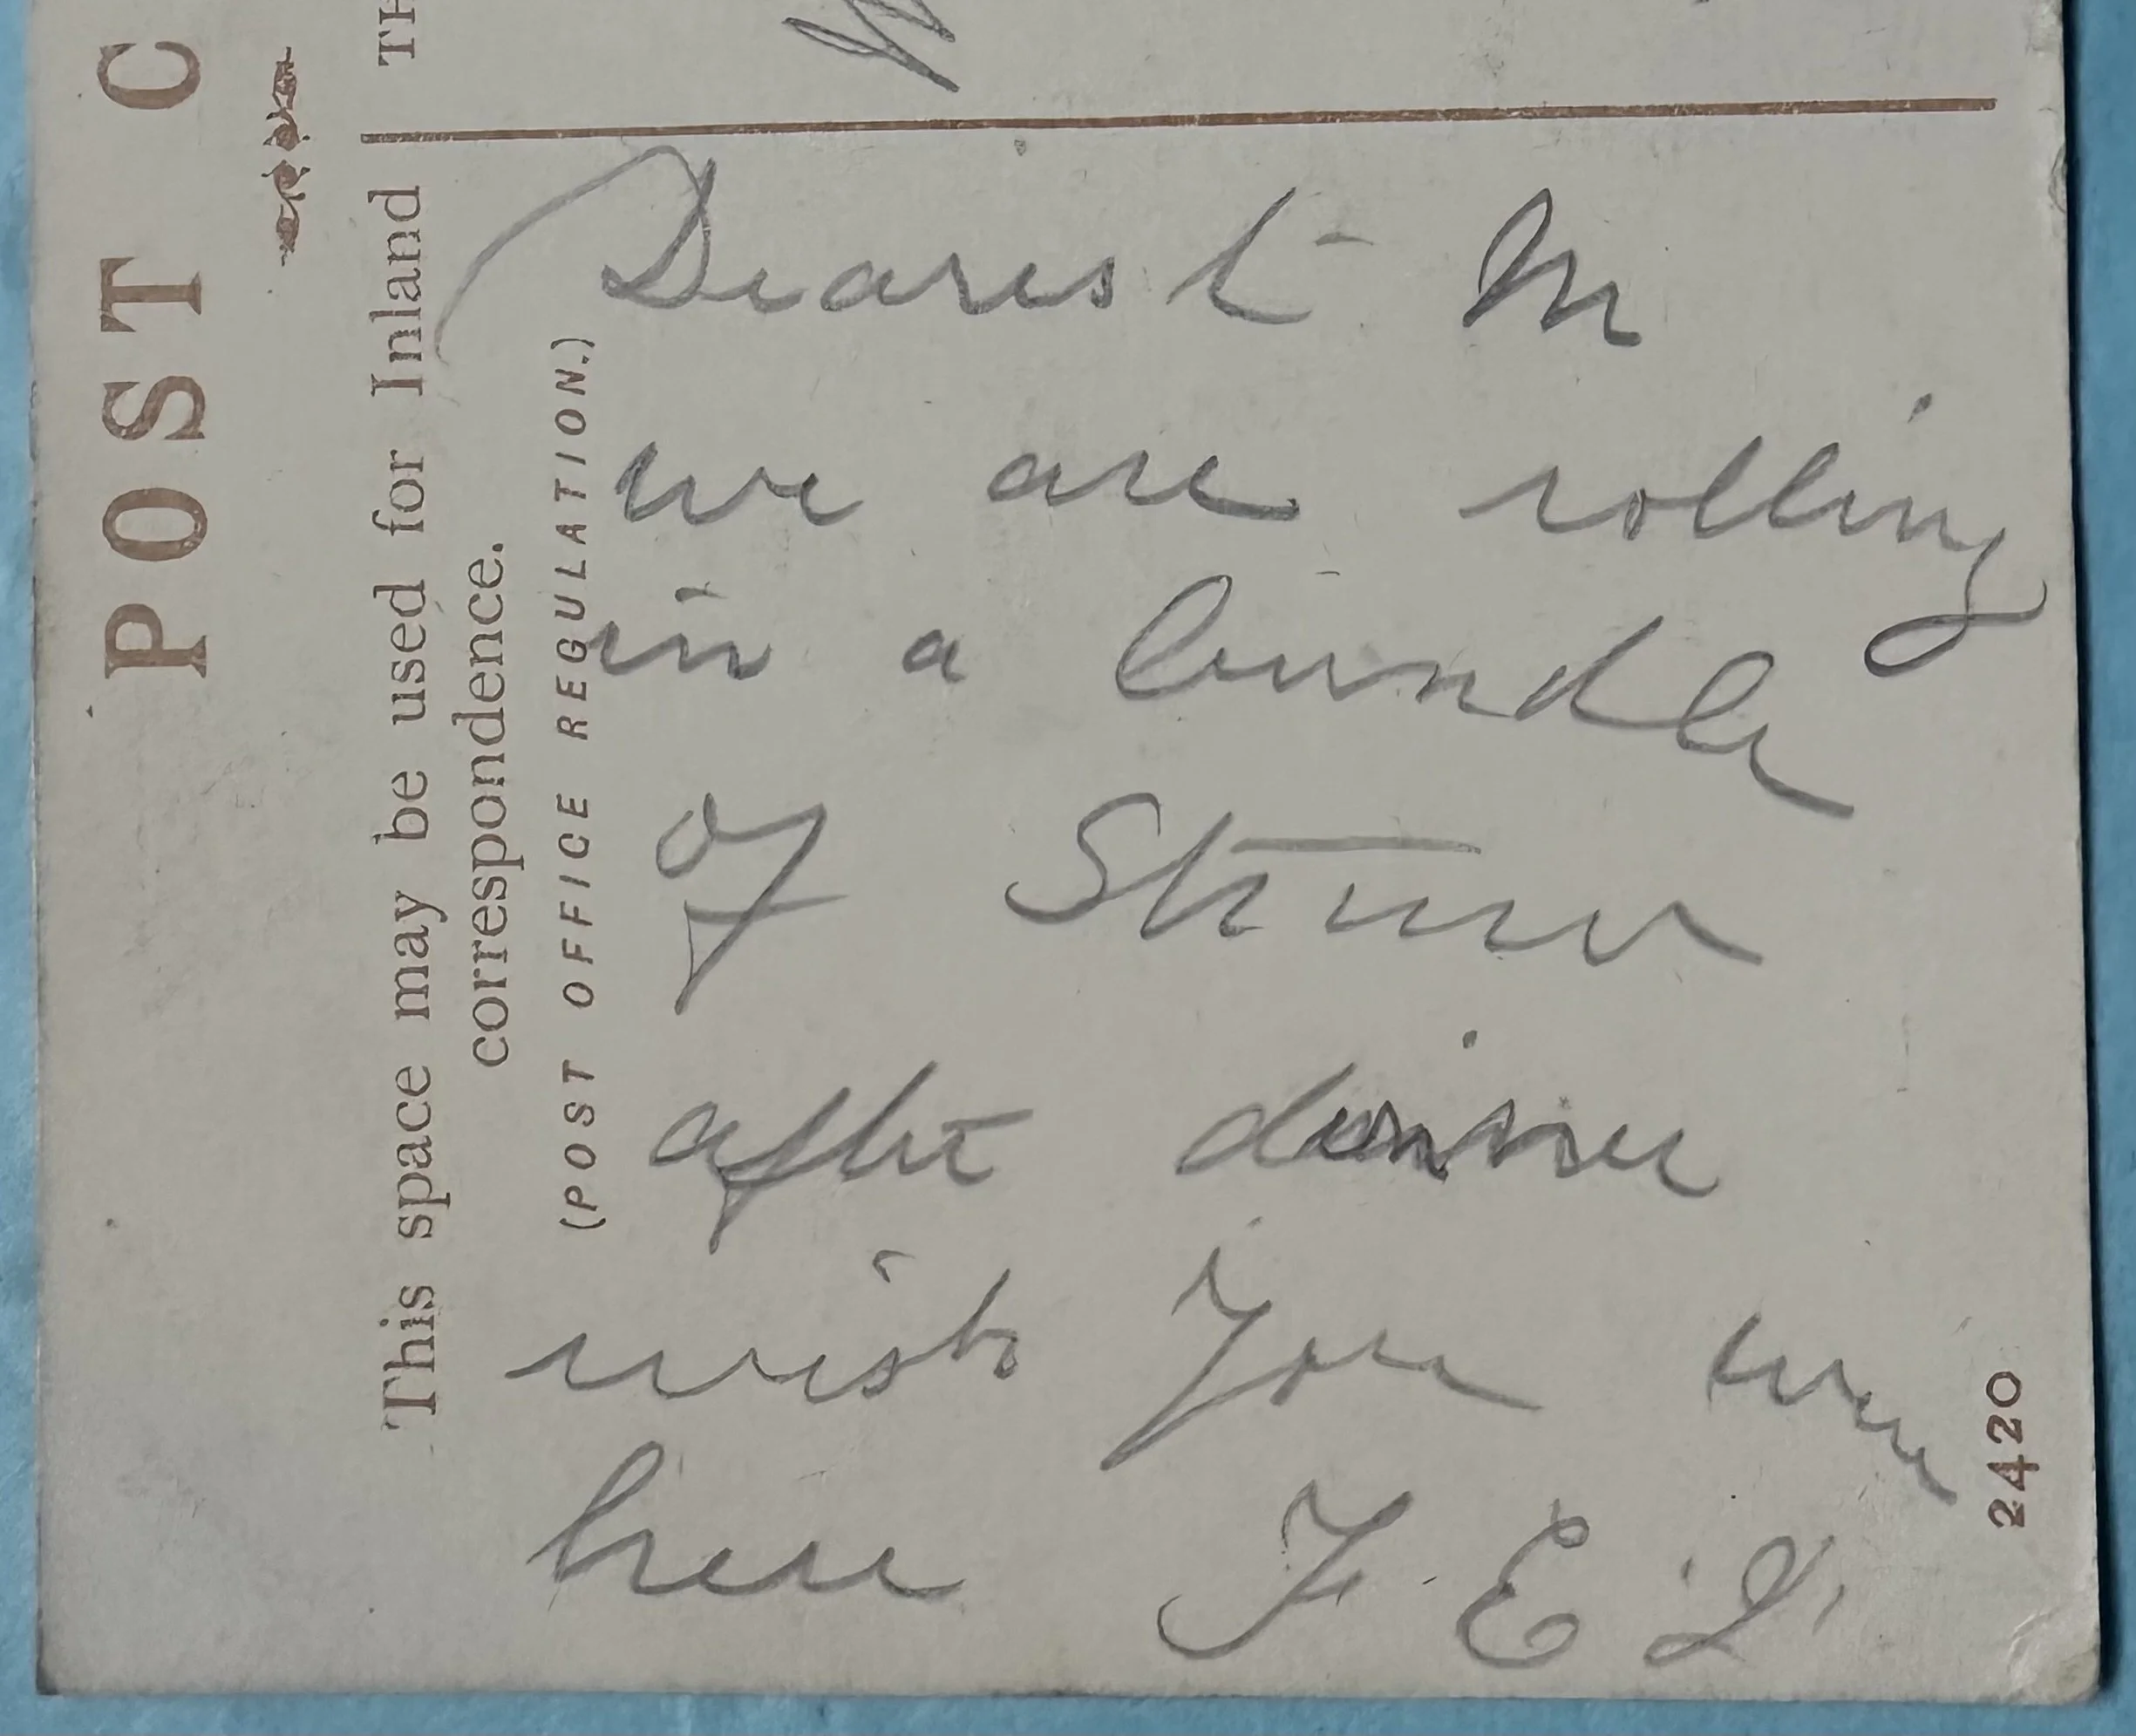 POST C
TH
This space may be used for Inland
correspondence.
(POST OFFICE REGULATION.)
Dearest M
we are rolling
in a bundle
of Straw
after dinner
wish you were
here F. E. L.
2420